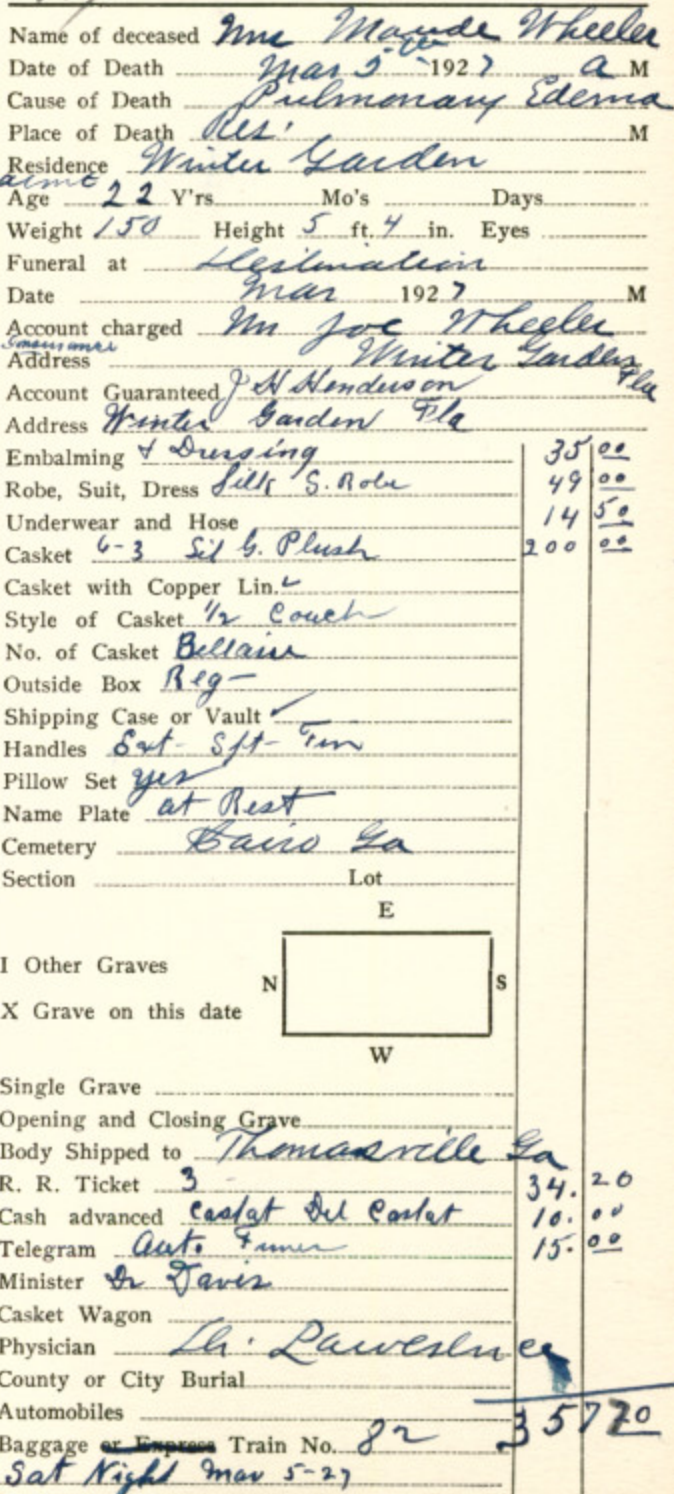 Name of deceased Mrs Maude Wheeler
Date of Death Mar 5th 1927 A M
Cause of Death Pulmonary Edema
Place of Death Res. M
Residence Winter Garden
Age 22 Y'rs. Mo's Days
Weight 150 Height 5 ft. 4 in. Eyes
Funeral at Destination
Date Mar 1927 M
Account charged Mr Joe Wheeler
Insurance
Address Winter Garden Fla
Account Guaranteed J H Henderson
Address Winter Garden Fla
Embalming & Dressing 35 00
Robe, Suit, Dress Silk S. Robe 49 00
Underwear and Hose 14 50
Casket 6-3 Sil G. Plush 200 00
Casket with Copper Lin. ✓
Style of Casket 1/2 Couch
No. of Casket Bellaire
Outside Box Reg-
Shipping Case or Vault ✓
Handles Ext-
Pillow Set yes
Name Plate at Rest
Cemetery Cairo Ga
Section Lot
E
I Other Graves
N S
X Grave on this date
W
Single Grave
Opening and Closing Grave
Body Shipped to Thomasville Ga
R. R. Ticket 3 34.20
Cash advanced Del 10.00
Telegram Auto 15.00
Minister Dr Davis
Casket Wagon
Physician
County or City Burial
Automobiles 357 70
Baggage or Express Train No. 82
Sat Night Mar 5-27